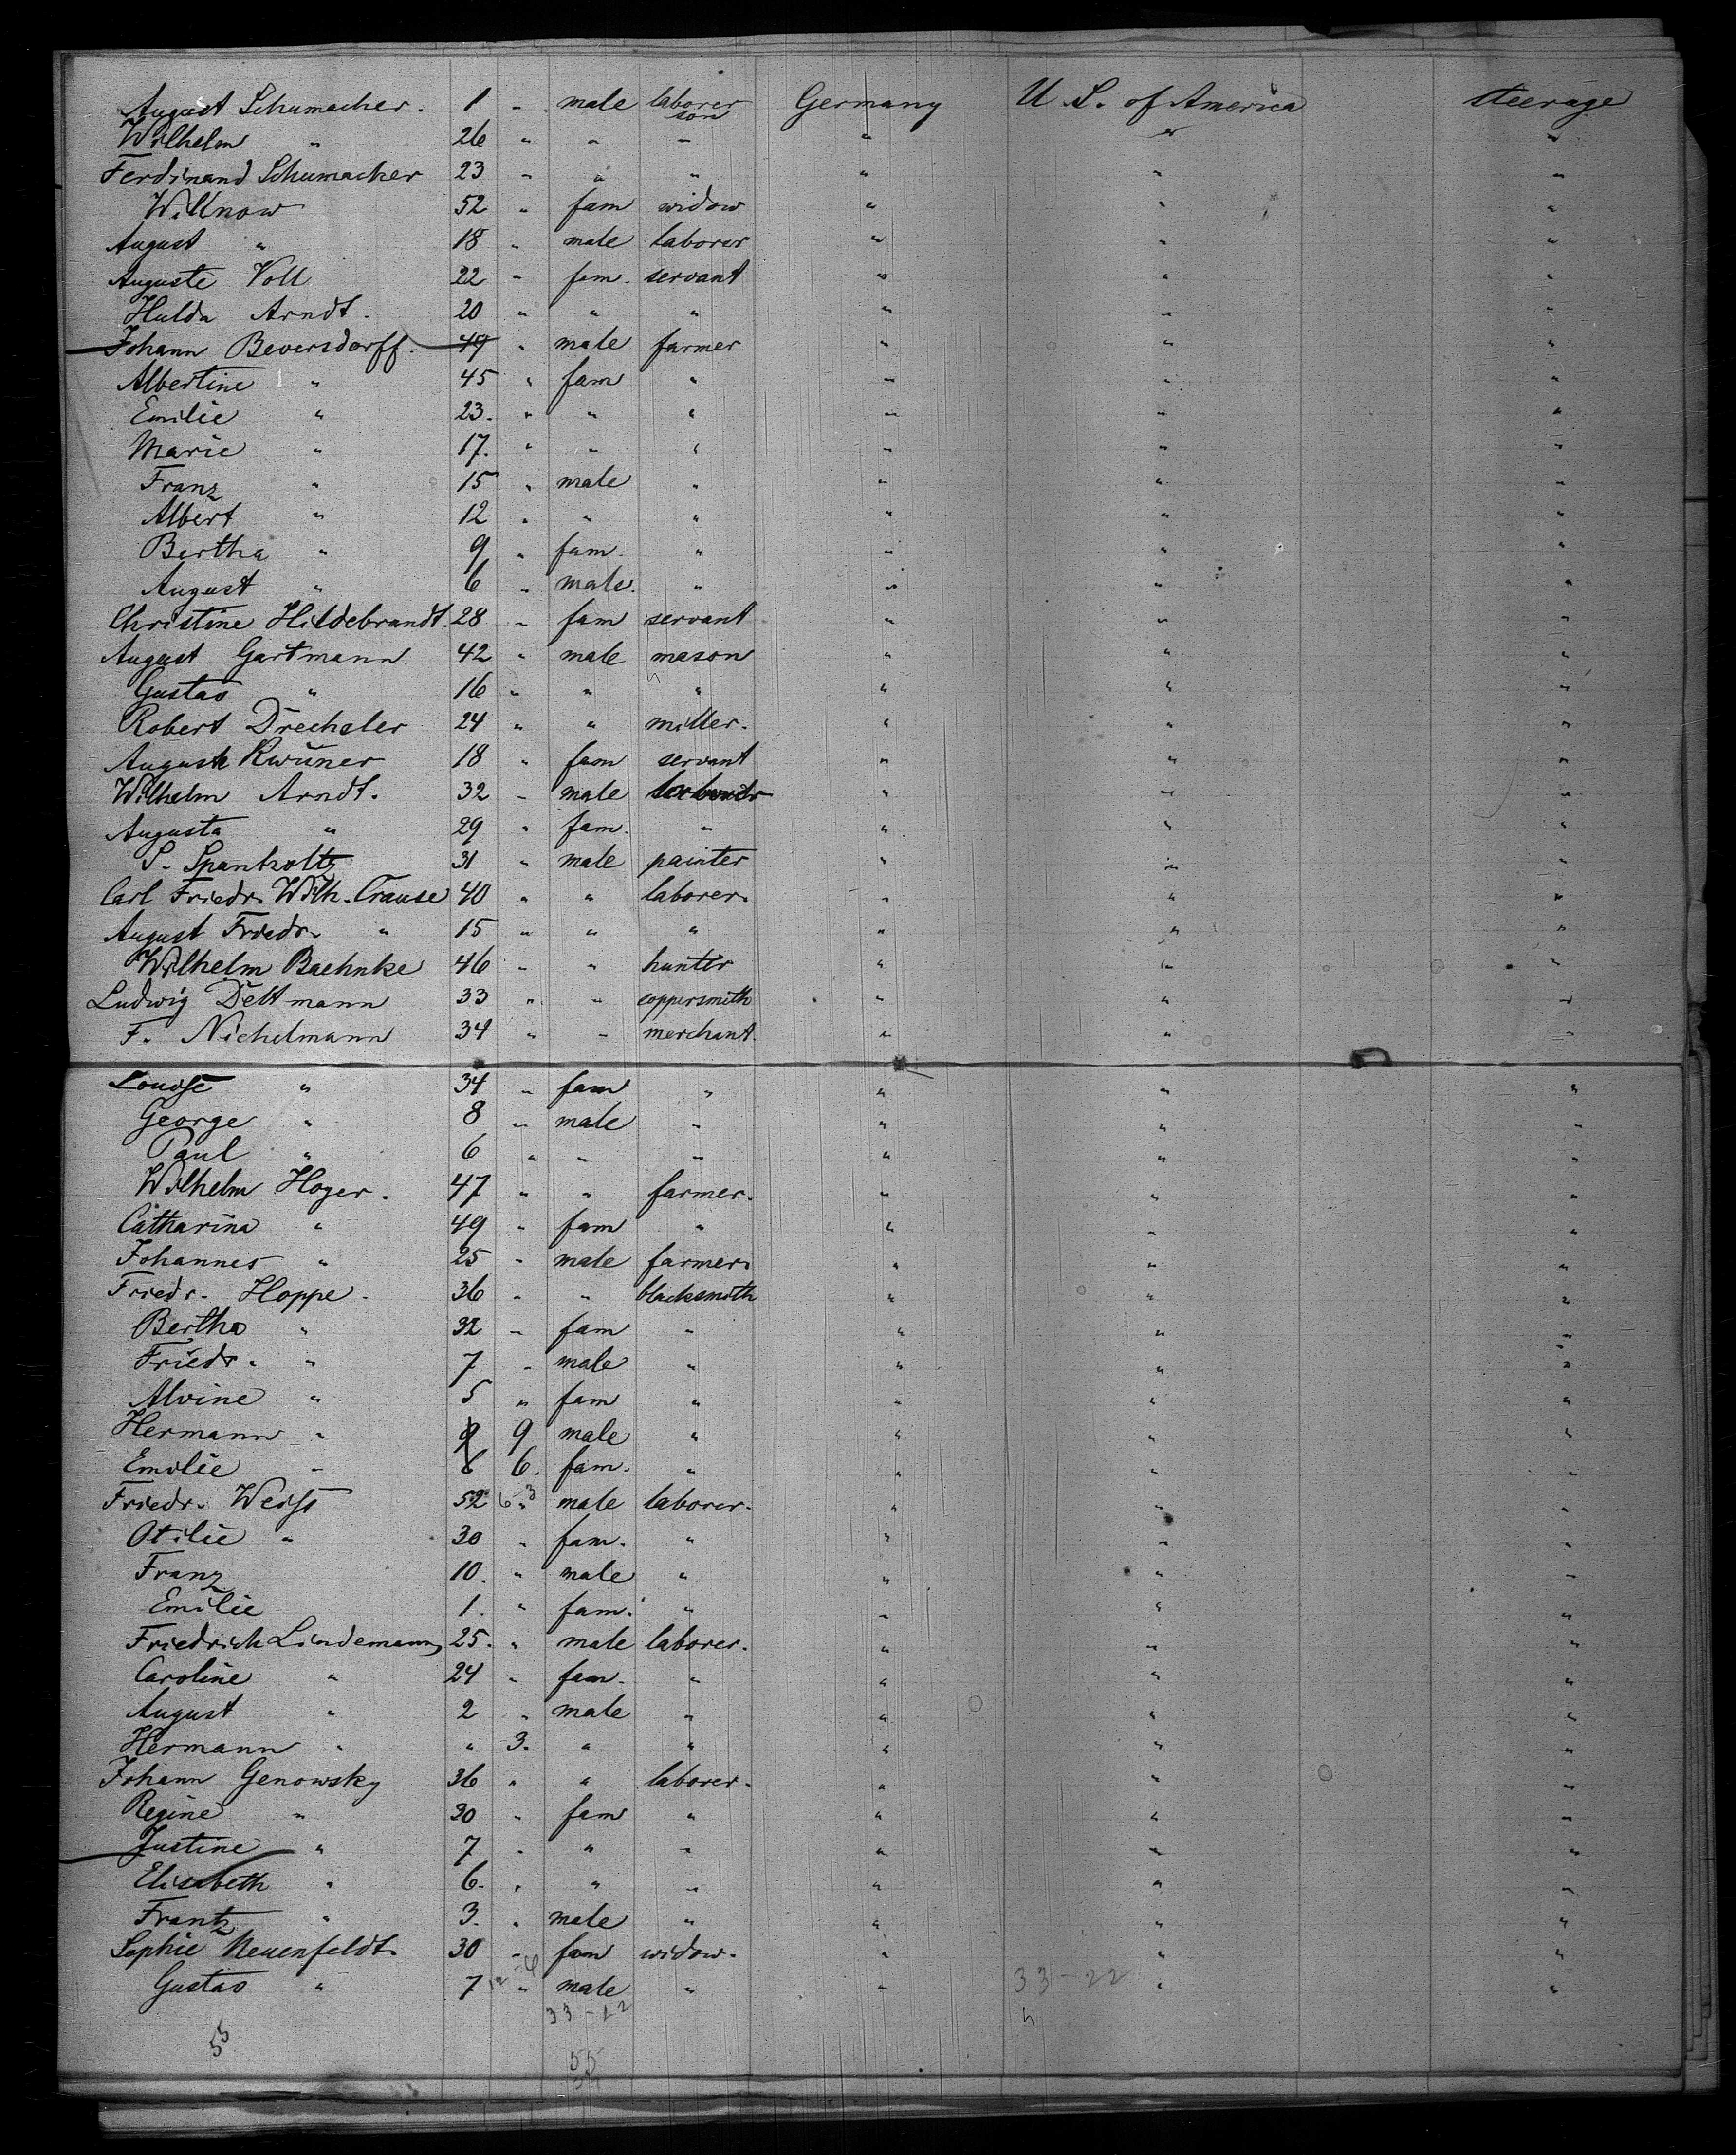 August Schumacher. 1 " male laborer son Germany U. S. of America steerage
Wilhelm " 26 " " " " " "
Ferdinand Schumacher 23 " " " " " "
Willnow 52 " fam widow " " "
August " 18 " male laborer " " "
Auguste Voll 22 " fam. servant " " "
Hulda Arndt. 20 " " " " " "
Johann Beversdorff. 49 " male farmer " " "
Albertine " 45 " fam " " " "
Emilie " 23. " " " " " "
Marie " 17. " " " " " "
Franz " 15 " male " " " "
Albert " 12 " " " " " "
Bertha " 9 " fam. " " " "
August " 6 " male. " " " "
Christine Hildebrandt. 28 " fam servant " " "
August Gartmann 42 " male mason " " "
Gustav " 16 " " " " " "
Robert Drechsler 24 " " miller. " " "
August 18 " fam servant " " "
Wilhelm Arndt. 32 " male " " "
Augusta " 29 " fam. " " " "
S. Spantholtz 31 " male painter " " "
Carl Friedr. Wilh. Crause 40 " " laborer. " " "
August Friedr. " 15 " " " " " "
Wilhelm Baehnke 46 " " hunter " " "
Ludwig Deltmann 33 " " coppersmith " " "
F. Nichelmann 34 " " merchant. " " "
Louise " 34 " fam " " " "
George " 8 " male " " " "
Paul " 6 " " " " " "
Wilhelm Hoger. 47 " " farmer. " " "
Catharina " 49 " fam " " " "
Johannes " 25 " male farmer. " " "
Friedr. Hoppe. 36 " " blacksmith " " "
Bertha " 32 " fam " " " "
Friedr. " 7 " male " " " "
Alvine " 5 " fam " " " "
Hermann " 9 9 male " " " "
Emilie " 6 6. fam. " " " "
Friedr. Weiss 52 6-3 " male laborer. " " "
Otilie " 30 " fam. " " " "
Franz 10. " male " " " "
Emilie 1. " fam. " " " "
Friedrich Lindemann 25. " male laborer. " " "
Caroline " 24 " fam. " " " "
August " 2 " male " " " "
Hermann " " 3. " " " " "
Johann Genowsky 36 " " laborer. " " "
Regine " 30 " fam " " " "
Justine " 7 " " " " " "
Elisabeth " 6. " " " " " "
Frantz " 3. " male " " " "
Sophie Neuenfeldt. 30 " fam widow. " " "
Gustav " 7 " male " " 33-22 " "
33-22
55
55